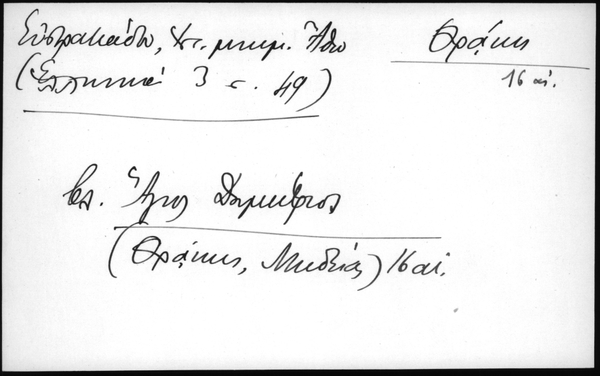 Εὐστρατιάδου, Ἱστ. μνημ. Ἄθω
(Ἑλληνικά 3 σ. 49)
Θρᾴκης
16 αἰ.
βλ. Ἅγιος Δημήτριος
(Θρᾴκης, Μηδείας) 16 αἰ.